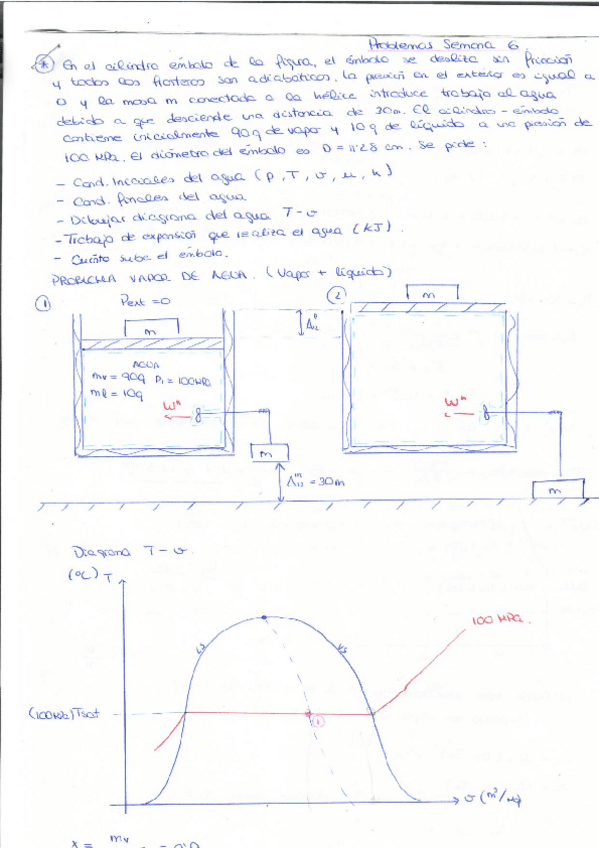 Problemas Semana 6
* En el cilindro émbolo de la figura, el émbolo se desliza sin fricción
y todas las fronteras son adiabáticas. La presión en el exterior es igual a
0 y la masa m conectada a la hélice introduce trabajo al agua
debido a que desciende una distancia de 30m. El cilindro-émbolo
contiene inicialmente 90g de vapor y 10g de líquido a una presión de
100 kPa. El diámetro del émbolo es D = 11'28 cm. Se pide:
- Cond. Iniciales del agua (p, T, v, u, h)
- Cond. finales del agua
- Dibujar diagrama del agua T-v
- Trabajo de expansión que realiza el agua (kJ).
- Cuánto sube el émbolo.
PROBLEMA VAPOR DE AGUA. (Vapor + líquido)
1 Pext = 0
2
m
m
AGUA
mv = 90g P1 = 100kPa
ml = 10g
m
m
Δ12 = 30m
Diagrama T-v.
(ºC) T
LS
VS
100 kPa.
(100kPa) Tsat
1
v (m³/kg)
x = mv = 0'9